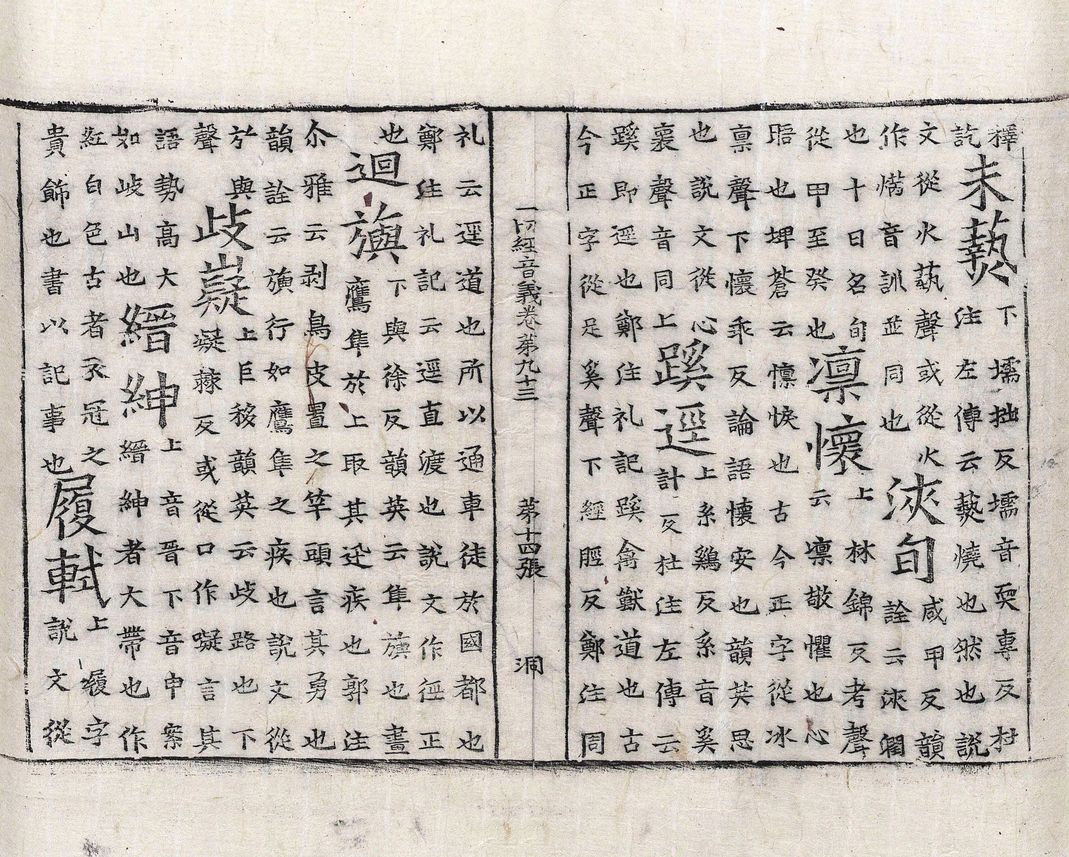 釋訖
未爇
下壖拙反壖音耎專反杜
注左傳云爇燒也然也說
文從火蓺聲或從火
作焫音訓並同也
浹旬
咸甲反韻
詮云浹㴠
也十日名旬
從甲至癸也
凛懷
上林錦反考聲
云凛敬懼也心
㖧也埤蒼云懔悷也古今正字從冰
禀聲下懷乖反論語懷安也韻英思
也說文從心
褱聲音同上
蹊逕
上系鷄反系音奚
計反杜注左傳云
蹊即逕也鄭注礼記蹊禽獸道也古
今正字從足奚聲下經脛反鄭注周
一切經音義卷第九十三 第十四張 洞
礼云逕道也所以通車徒於國都也
鄭注礼記云逕直渡也說文作徑正
也
迴旟
下與徐反韻英云隼旟也畫
鷹隼於上取其迅疾也郭注
尒雅云剥鳥皮置之竿頭言其勇也
韻詮云旟行如鷹隼之疾也說文從
㫃與
聲
歧嶷
上巨移韻英云歧路也下
凝棘反或從口作㘈言其
語勢高大
如岐山也
縉紳
上音晋下音申案
縉紳者大帶也作
紅白色古者衣冠之
貴飾也書以記事也
履軾
上履字
說文從